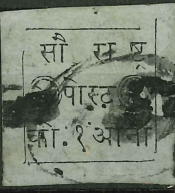 सौ राष्ट
पोस्ट
को. १ आना